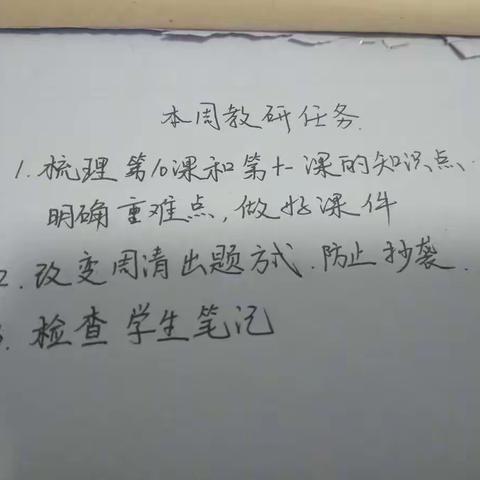 本周教研任务.
1. 梳理第10课和第十一课的知识点.
明确重难点,做好课件
2. 改变周清出题方式.防止抄袭.
3. 检查学生笔记